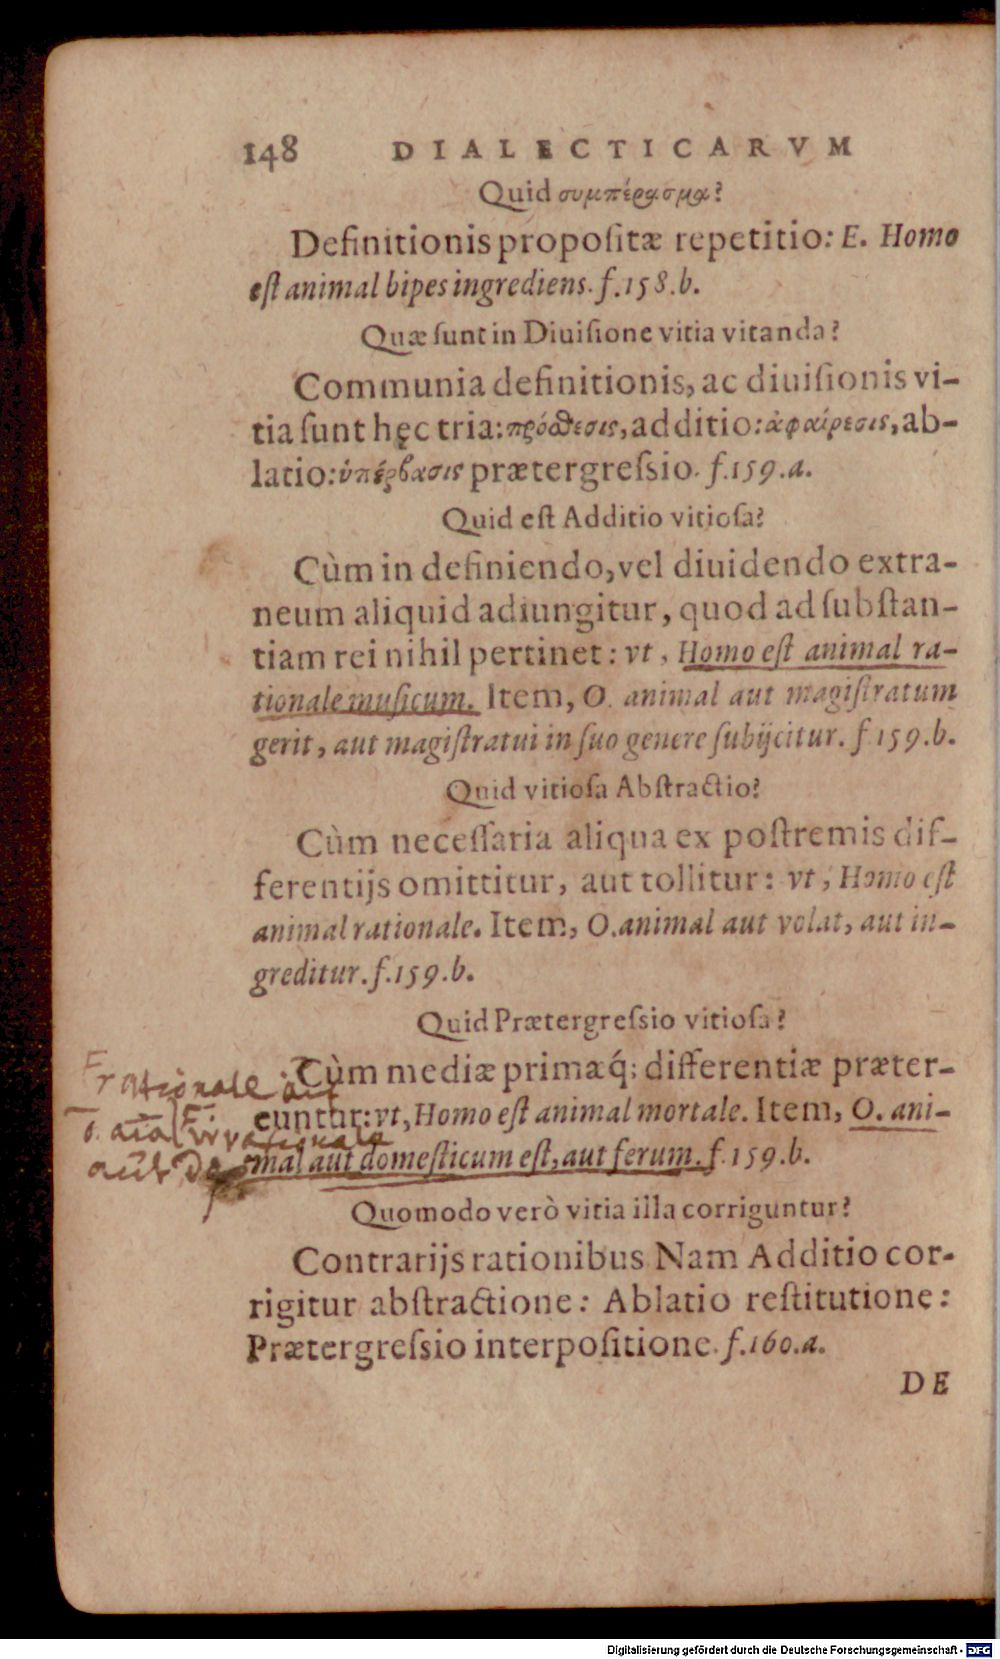 148 DIALECTICARVM
Quid συμπέρασμα?
Definitionis propositæ repetitio: E. Homo
est animal bipes ingrediens. f.158.b.
Quæ sunt in Diuisione vitia vitanda?
Communia definitionis, ac diuisionis vi-
tia sunt hęc tria: πρόσθεσις, additio: ἀφαίρεσις, ab-
latio: ὑπέρβασις prætergressio. f.159.a.
Quid est Additio vitiosa?
Cùm in definiendo, vel diuidendo extra-
neum aliquid adiungitur, quod ad substan-
tiam rei nihil pertinet: vt, Homo est animal ra-
tionale musicum. Item, O. animal aut magistratum
gerit, aut magistratui in suo genere subijcitur. f 159.b.
Quid vitiosa Abstractio?
Cùm necessaria aliqua ex postremis dif-
ferentijs omittitur, aut tollitur: vt, Homo est
animal rationale. Item, O. animal aut volat, aut in-
greditur. f.159.b.
Quid Prætergressio vitiosa?
Cùm mediæ primæq́; differentiæ præter-
euntur: vt, Homo est animal mortale. Item, O. ani-
mal aut domesticum est, aut ferum. f.159.b.
rationale aut
irrationale
aut
Quomodo verò vitia illa corriguntur?
Contrarijs rationibus Nam Additio cor-
rigitur abstractione: Ablatio restitutione:
Prætergressio interpositione. f.160.a.
DE
Digitalisierung gefördert durch die Deutsche Forschungsgemeinschaft - DFG